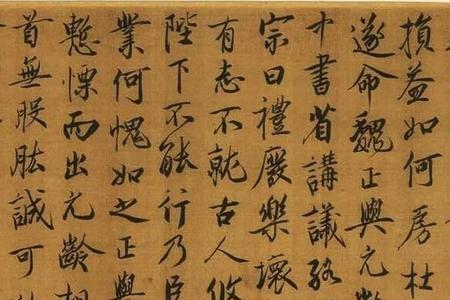 損益如何房杜
遂命魏正與元
中書省講議
宗曰禮廢樂壞
有志不就古人攸
陛下不能行乃臣
業何愧如之正與
慙慄而出元齡相
首無股肱誠可